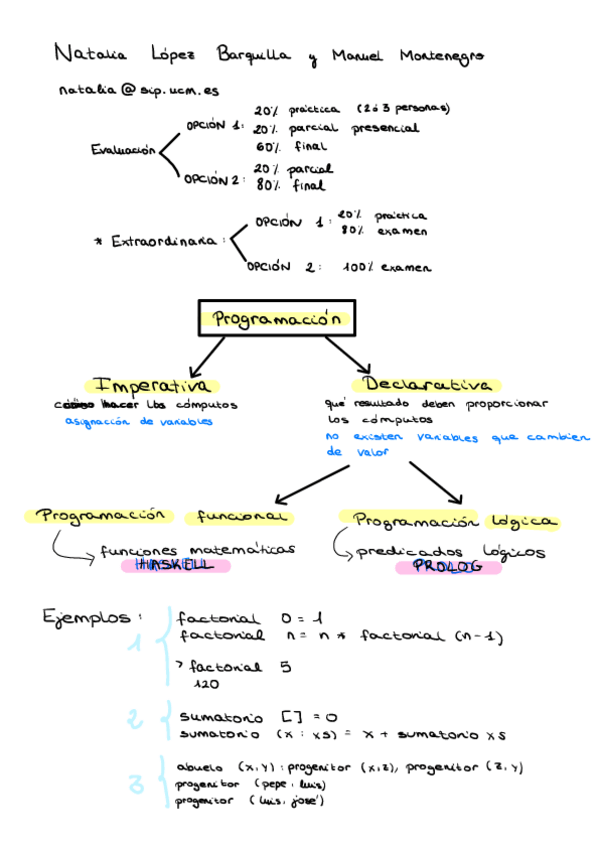 Natalia López Barquilla y Manuel Montenegro
natalia@sip.ucm.es
Evaluación
OPCIÓN 1: 20% práctica (2 ó 3 personas)
20% parcial presencial
60% final
OPCIÓN 2: 20% parcial
80% final
* Extraordinaria:
OPCIÓN 1: 20% práctica
80% examen
OPCIÓN 2: 100% examen
Programación
Imperativa
cómo hacer los cómputos
asignación de variables
Declarativa
qué resultado deben proporcionar
los cómputos
no existen variables que cambien
de valor
Programación funcional
funciones matemáticas
HASKELL
Programación lógica
predicados lógicos
PROLOG
Ejemplos:
1
factorial 0 = 1
factorial n = n * factorial (n-1)
> factorial 5
120
2
sumatorio [] = 0
sumatorio (x : xs) = x + sumatorio xs
3
abuelo (x,y) : progenitor (x,z), progenitor (z,y)
progenitor (pepe, luis)
progenitor (luis, josé)